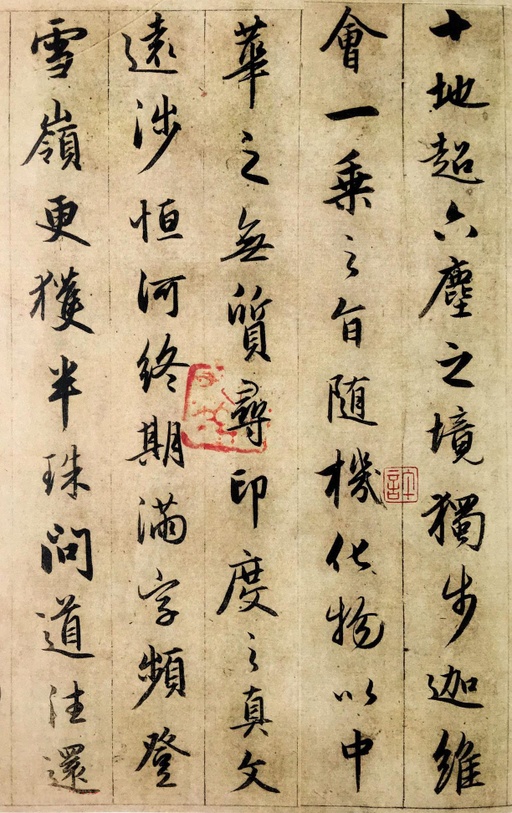 十地超六塵之境獨步迦維
會一乗之旨随機化物以中
華之無質尋印度之真文
遠涉恒河終期滿字頻登
雪嶺更獲半珠問道往還